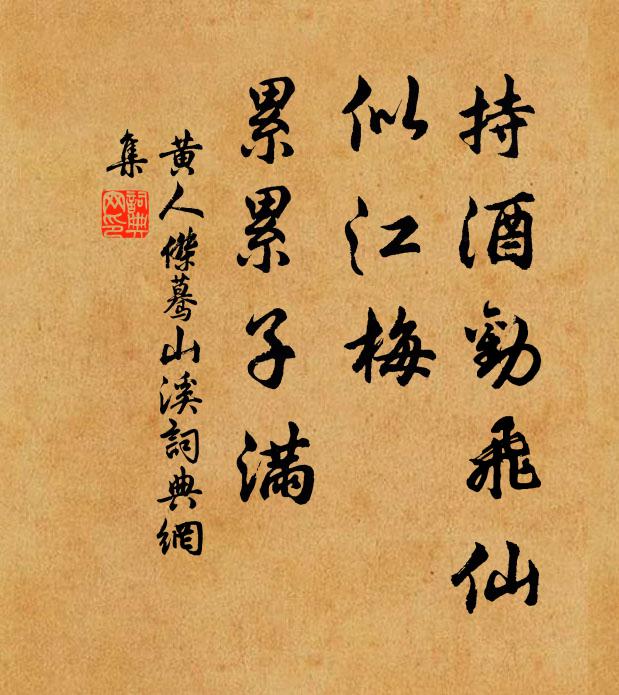 持酒勸飛仙
似江梅
累累子滿
黄人傑驀山溪詞典網
集
詞典網印